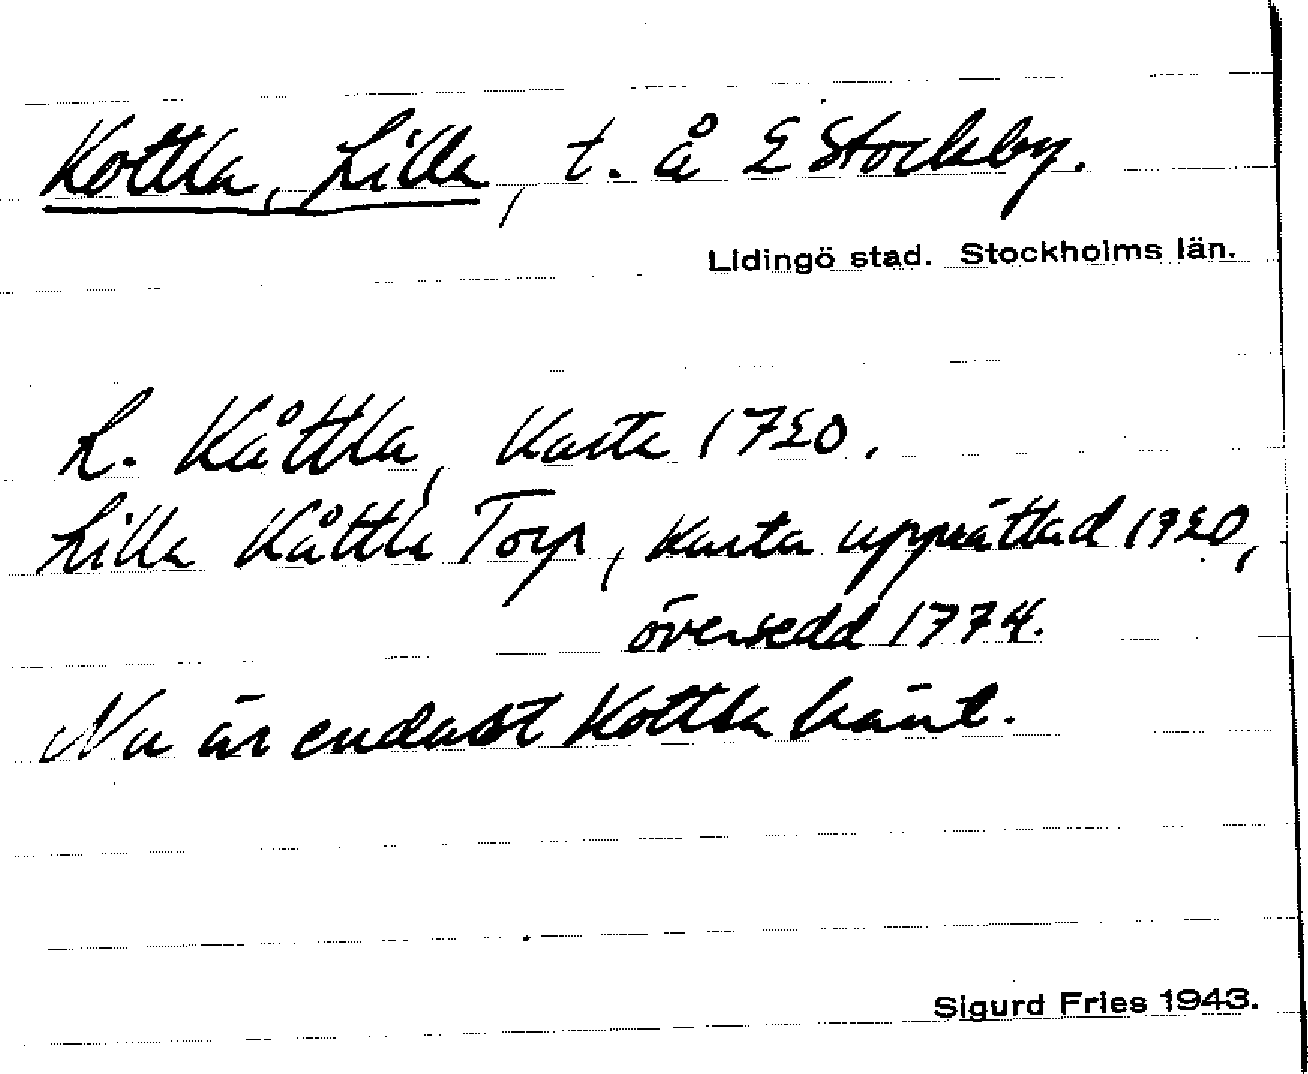 Kottla, Lilla, t. å 2 Stockby.
Lidingö stad. Stockholms län.
L. Kåttla, Karta 1720.
Lilla Kåttla Torp, Karta upprättad 1720,
översedd 1774.
Nu är endast Kottla känt.
Sigurd Fries 1943.